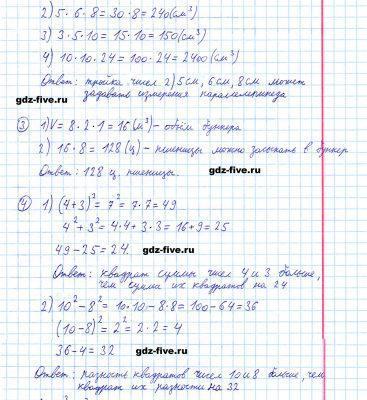 2) 5 · 6 · 8 = 30 · 8 = 240 (см³)
3) 3 · 5 · 10 = 15 · 10 = 150 (см³)
4) 10 · 10 · 24 = 100 · 24 = 2400 (см³)
Ответ: тройка чисел 2) 5см, 6см, 8см может
gdz-five.ru задавать измерения параллелепипеда
③ 1) V = 8 · 2 · 1 = 16 (м³) - объём бункера
2) 16 · 8 = 128 (ц) - пшеницы можно засыпать в бункер
Ответ: 128 ц. пшеницы. gdz-five.ru
④ 1) (4+3)² = 7² = 7 · 7 = 49
4² + 3² = 4 · 4 + 3 · 3 = 16 + 9 = 25
49 - 25 = 24. gdz-five.ru
Ответ: квадрат суммы чисел 4 и 3 больше,
чем сумма их квадратов на 24
2) 10² - 8² = 10 · 10 - 8 · 8 = 100 - 64 = 36
(10 - 8)² = 2² = 2 · 2 = 4
36 - 4 = 32 gdz-five.ru
Ответ: разность квадратов чисел 10 и 8 больше, чем
квадрат их разности на 32